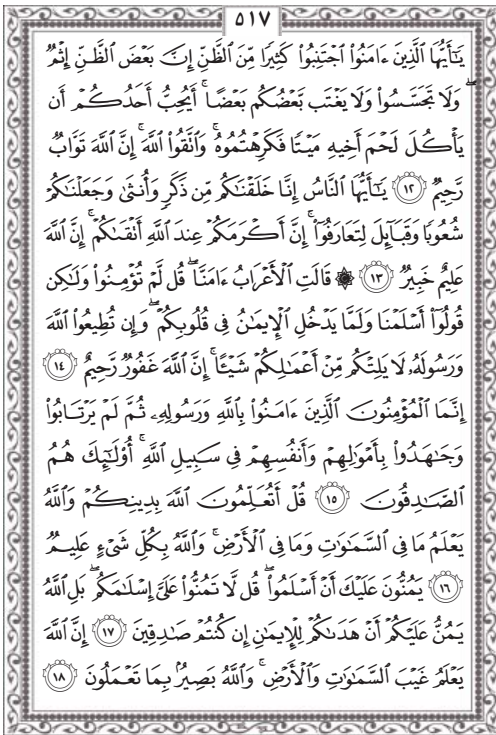 ٥١٧
يَـٰٓأَيُّهَا ٱلَّذِينَ ءَامَنُوا۟ ٱجْتَنِبُوا۟ كَثِيرًا مِّنَ ٱلظَّنِّ إِنَّ بَعْضَ ٱلظَّنِّ إِثْمٌ
ۖ وَلَا تَجَسَّسُوا۟ وَلَا يَغْتَب بَّعْضُكُم بَعْضًا ۚ أَيُحِبُّ أَحَدُكُمْ أَن
يَأْكُلَ لَحْمَ أَخِيهِ مَيْتًا فَكَرِهْتُمُوهُ ۚ وَٱتَّقُوا۟ ٱللَّهَ ۚ إِنَّ ٱللَّهَ تَوَّابٌ
رَّحِيمٌ ١٢ يَـٰٓأَيُّهَا ٱلنَّاسُ إِنَّا خَلَقْنَـٰكُم مِّن ذَكَرٍ وَأُنثَىٰ وَجَعَلْنَـٰكُمْ
شُعُوبًا وَقَبَآئِلَ لِتَعَارَفُوٓا۟ ۚ إِنَّ أَكْرَمَكُمْ عِندَ ٱللَّهِ أَتْقَىٰكُمْ ۚ إِنَّ ٱللَّهَ
عَلِيمٌ خَبِيرٌ ١٣ ۞ قَالَتِ ٱلْأَعْرَابُ ءَامَنَّا ۖ قُل لَّمْ تُؤْمِنُوا۟ وَلَـٰكِن
قُولُوٓا۟ أَسْلَمْنَا وَلَمَّا يَدْخُلِ ٱلْإِيمَـٰنُ فِى قُلُوبِكُمْ ۖ وَإِن تُطِيعُوا۟ ٱللَّهَ
وَرَسُولَهُۥ لَا يَلِتْكُم مِّنْ أَعْمَـٰلِكُمْ شَيْـًٔا ۚ إِنَّ ٱللَّهَ غَفُورٌ رَّحِيمٌ ١٤
إِنَّمَا ٱلْمُؤْمِنُونَ ٱلَّذِينَ ءَامَنُوا۟ بِٱللَّهِ وَرَسُولِهِۦ ثُمَّ لَمْ يَرْتَابُوا۟
وَجَـٰهَدُوا۟ بِأَمْوَٰلِهِمْ وَأَنفُسِهِمْ فِى سَبِيلِ ٱللَّهِ ۚ أُو۟لَـٰٓئِكَ هُمُ
ٱلصَّـٰدِقُونَ ١٥ قُلْ أَتُعَلِّمُونَ ٱللَّهَ بِدِينِكُمْ وَٱللَّهُ
يَعْلَمُ مَا فِى ٱلسَّمَـٰوَٰتِ وَمَا فِى ٱلْأَرْضِ ۚ وَٱللَّهُ بِكُلِّ شَىْءٍ عَلِيمٌ
١٦ يَمُنُّونَ عَلَيْكَ أَنْ أَسْلَمُوا۟ ۖ قُل لَّا تَمُنُّوا۟ عَلَىَّ إِسْلَـٰمَكُم ۖ بَلِ ٱللَّهُ
يَمُنُّ عَلَيْكُمْ أَنْ هَدَىٰكُمْ لِلْإِيمَـٰنِ إِن كُنتُمْ صَـٰدِقِينَ ١٧ إِنَّ ٱللَّهَ
يَعْلَمُ غَيْبَ ٱلسَّمَـٰوَٰتِ وَٱلْأَرْضِ ۚ وَٱللَّهُ بَصِيرٌۢ بِمَا تَعْمَلُونَ ١٨